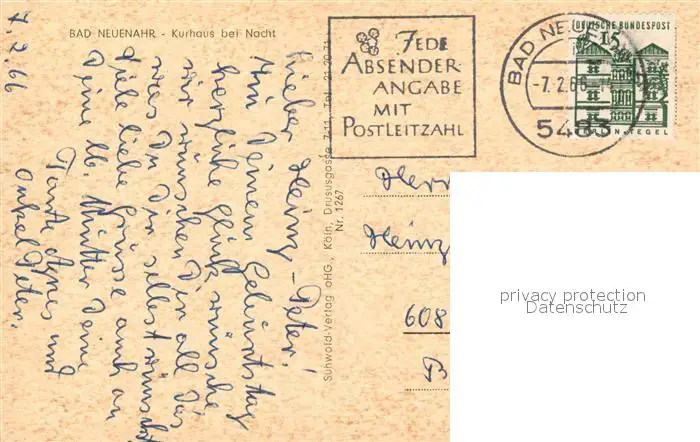 BAD NEUENAHR - Kurhaus bei Nacht
7.2.66
Lieber Heinz-Peter!
Zu Deinem Geburtstag
herzliche Glückwünsche
Wir wünschen Dir all das
was Du Dir selbst wünscht
Viele liebe Grüsse auch an
Deine lb. Mutter Deine
Tante Agnes und
Onkel Peter.
Sühwold-Verlag oHG., Köln, Drususgasse 7-11, Tel. 21 20 71
Nr. 1267
JEDE
ABSENDER
ANGABE
MIT
POSTLEITZAHL
BAD NEUENAHR
-7.2.66
5483
DEUTSCHE BUNDESPOST
15
BERLIN-TEGEL
Herr
Heinz
608
privacy protection
Datenschutz